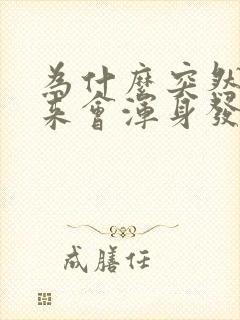 為什麼突然
来會渾身發
成膳任